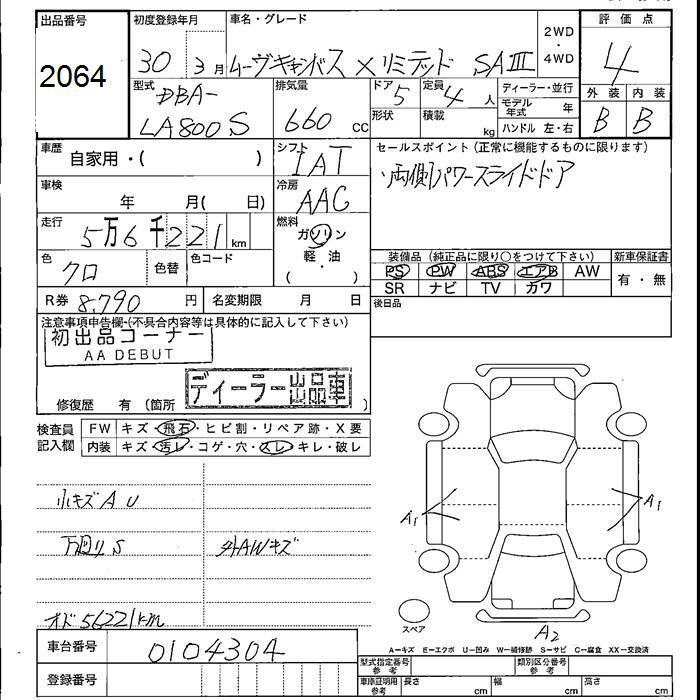 出品番号
2064
初度登録年月
30 3月
車名・グレード
ムーヴキャンバス Xリミテッド SAIII
2WD
・
4WD
評価点
4
外装 内装
B B
型式
DBA-
LA800S
排気量
660 cc
ドア
5
定員
4 人
形状
積載
kg
ディーラー・並行
モデル年式 年
ハンドル 左・右
車歴
自家用・( )
シフト
IAT
セールスポイント(正常に機能するものに限ります)
両側パワースライドドア
車検
年 月( 日)
冷房
AAC
走行
5万6千221km
燃料
ガソリン
軽・油
( )
色
クロ
色替
色コード
装備品(純正品に限り○をつけて下さい)
PS PW ABS エアB AW
SR ナビ TV カワ
新車保証書
有・無
R券 8,790 円
名変期限 月 日
後日品
注意事項申告欄・(不具合内容等は具体的に記入して下さい)
初出品コーナー
AA DEBUT
ディーラー出品車
修復歴 有 (箇所 )
検査員
記入欄
FW キズ・飛石・ヒビ割・リペア跡・X要
内装 キズ・汚レ・コゲ・穴・スレ・キレ・破レ
小キズAU
外AWキズ
オド56221km
A1
A1
スペア
A2
A−キズ E−エクボ U−凹み W−補修跡 S−サビ C−腐食 XX−交換済
車台番号
0104304
登録番号
型式指定番号
参考
類別区分番号
参考
車庫証明用
参考
長さ cm
幅 cm
高さ cm